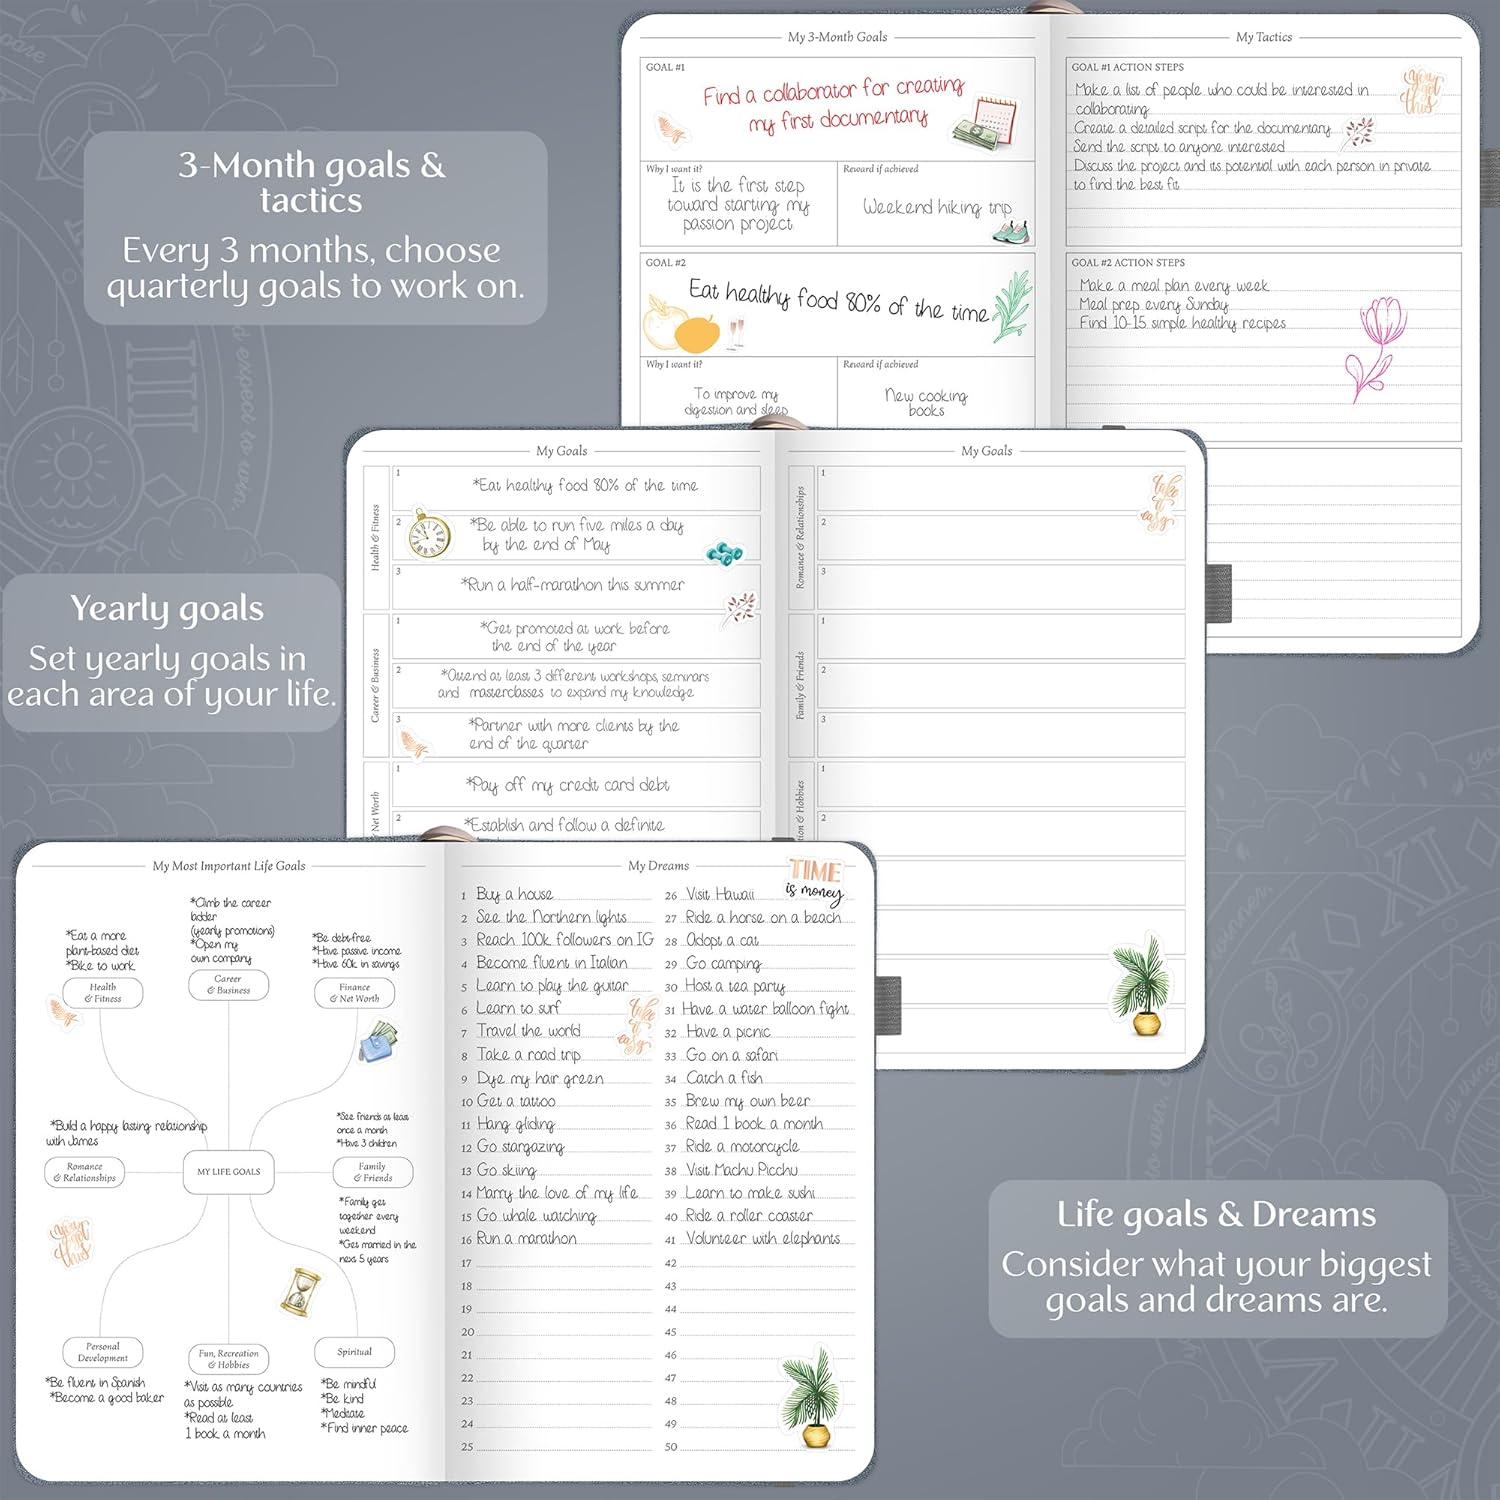 3-Month goals &
tactics
Every 3 months, choose
quarterly goals to work on.
My 3-Month Goals
GOAL #1
Find a collaborator for creating
my first documentary
Why I want it?
It is the first step
toward starting my
passion project
Reward if achieved
Weekend hiking trip
GOAL #2
Eat healthy food 80% of the time
Why I want it?
To improve my
digestion and sleep
Reward if achieved
New cooking
books
My Tactics
GOAL #1 ACTION STEPS
you
got
this
Make a list of people who could be interested in
collaborating
Create a detailed script for the documentary
Send the script to anyone interested
Discuss the project and its potential with each person in private
to find the best fit
GOAL #2 ACTION STEPS
Make a meal plan every week
Meal prep every Sunday
Find 10-15 simple healthy recipes
Yearly goals
Set yearly goals in
each area of your life.
My Goals
Health & Fitness
1
*Eat healthy food 80% of the time
2
*Be able to run five miles a day
by the end of May
3
*Run a half-marathon this summer
Career & Business
1
*Get promoted at work before
the end of the year
2
*Attend at least 3 different workshops, seminars
and masterclasses to expand my knowledge
3
*Partner with more clients by the
end of the quarter
Net Worth
1
*Pay off my credit card debt
2
*Establish and follow a definite
My Goals
Romance & Relationships
1
2
3
take
it
easy
Family & Friends
1
2
3
& Hobbies
1
2
My Most Important Life Goals
*Eat a more
plant-based diet
*Bike to work
Health
& Fitness
*Climb the career
ladder
(yearly promotions)
*Open my
own company
Career
& Business
*Be debt-free
*Have passive income
*Have 60k in savings
Finance
& Net Worth
*Build a happy lasting relationship
with James
Romance
& Relationships
MY LIFE GOALS
*See friends at least
once a month
*Have 3 children
Family
& Friends
*Family get
together every
weekend
*Get married in the
next 5 years
you
got
this
Personal
Development
*Be fluent in Spanish
*Become a good baker
Fun, Recreation
& Hobbies
*Visit as many countries
as possible
*Read at least
1 book a month
Spiritual
*Be mindful
*Be kind
*Meditate
*Find inner peace
My Dreams
TIME
is money
1 Buy a house
2 See the Northern lights
3 Reach 100k followers on IG
4 Become fluent in Italian
5 Learn to play the guitar
6 Learn to surf
7 Travel the world
8 Take a road trip
9 Dye my hair green
10 Get a tattoo
11 Hang gliding
12 Go stargazing
13 Go skiing
14 Marry the love of my life
15 Go whale watching
16 Run a marathon
17
18
19
20
21
22
23
24
25
take
it
easy
26 Visit Hawaii
27 Ride a horse on a beach
28 Adopt a cat
29 Go camping
30 Host a tea party
31 Have a water balloon fight
32 Have a picnic
33 Go on a safari
34 Catch a fish
35 Brew my own beer
36 Read 1 book a month
37 Ride a motorcycle
38 Visit Machu Picchu
39 Learn to make sushi
40 Ride a roller coaster
41 Volunteer with elephants
42
43
44
45
46
47
48
49
50
Life goals & Dreams
Consider what your biggest
goals and dreams are.